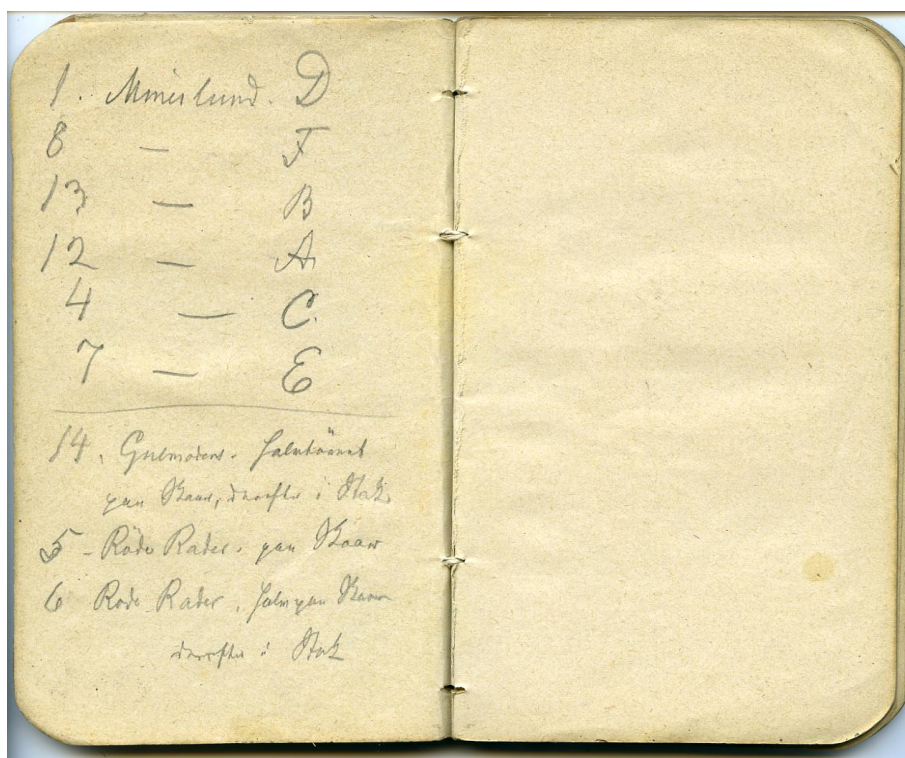 1. Mineslund. D
8 — F
13 — B
12 — A.
4 — C.
7 — E
14. Gulmodens. halvtörret
paa Skaar, derefter i Stak.
5 - Röde Rader. paa Skaar
6 Rode Rader. halv paa Skaar
derefter i Stak